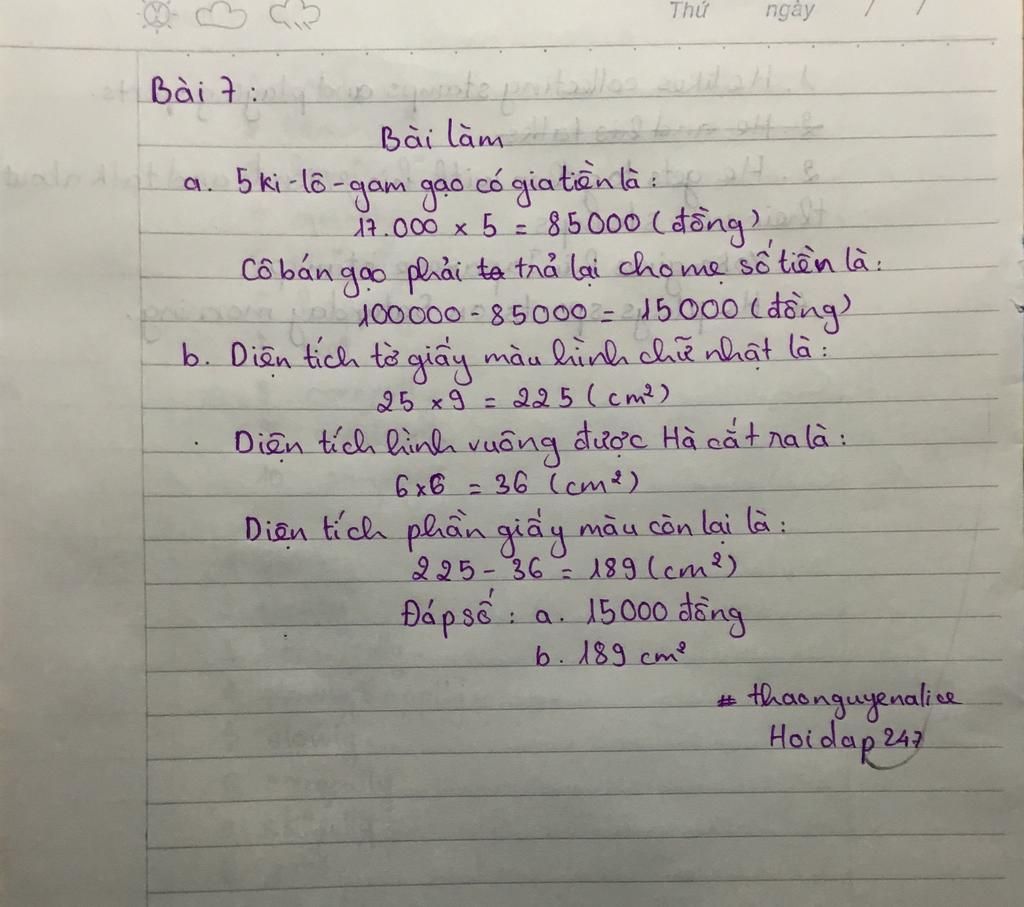 Thứ ngày / /
Bài 7:
Bài làm
a. 5 ki-lô-gam gạo có gia tiền là:
17.000 x 5 = 85000 (đồng)
Cô bán gạo phải trả lại cho mẹ số tiền là:
100000 - 85000 = 15000 (đồng)
b. Diện tích tờ giấy màu hình chữ nhật là:
25 x 9 = 225 (cm²)
Diện tích hình vuông được Hà cắt ra là:
6x6 = 36 (cm²)
Diện tích phần giấy màu còn lại là:
225 - 36 = 189 (cm²)
Đáp số: a. 15000 đồng
b. 189 cm²
# thaonguyenalice
Hoidap247